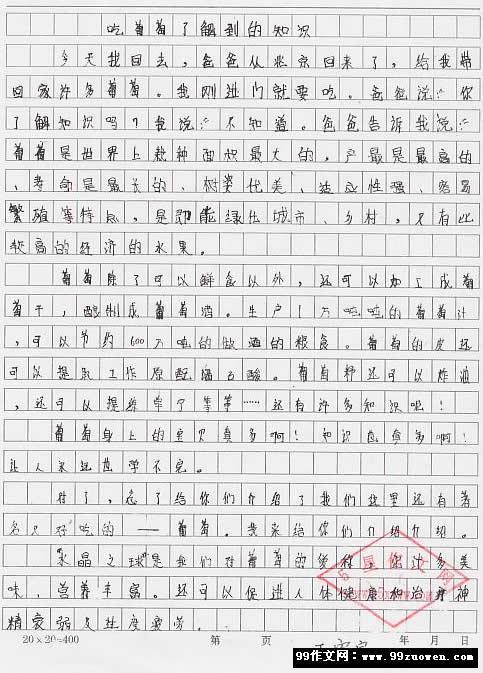 吃葡萄了解到的知识
今天我回去，爸爸从北京回来了，给我带
回家许多葡萄。我刚进门就要吃。爸爸说：“你
了解知识吗？我说：“不知道。爸爸告诉我说：“
葡萄是世界上栽种面积最大的，产最是最高的
、寿命是最长的、树姿优美、适应性强、容易
繁殖等特点，是即能绿化城市、乡村，又有比
较高的经济的水果。
葡萄除了可以鲜食以外，还可以加工成葡
萄干，酿制成葡萄酒。生产1万吨的葡萄汁
，可以节约600万吨的做酒的粮食。葡萄的皮还
可以提取工作原酒石酸。葡萄籽还可以炸油
，还可以提练单宁等等……还有许多知识呢！
葡萄身上的宝贝真多啊！知识也真多啊！
让人永远也学不完。
对了，忘了给你们介绍了我们这里还有著
名又好吃的——葡萄。我来给你们介绍介绍。
“水晶之球”是我们对葡萄的美称，它汁多美
味，营养丰富。还可以促进人体健康和治疗神
精衰弱及过度疲劳。
20×20=400 第 页 年 月 日
99作文网：www.99zuowen.com